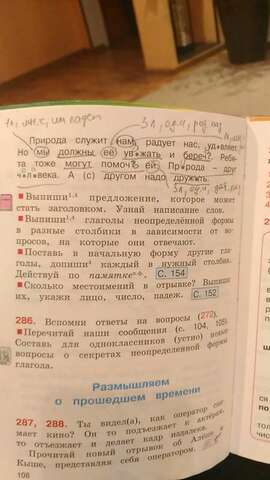 3 л., ед.ч., род. пад.
Природа служит нам, радует нас, уд•вляет.
Но мы должны её ув•жать и береч?. Ребя-
та тоже могут помоч? ей. Пр•рода – друг
ч•л•века. А (с) другом надо дружить.
Выпиши предложение, которое может
стать заголовком. Узнай написание слов.
Выпиши глаголы неопределённой формы
в разные столбики в зависимости от во-
просов, на которые они отвечают.
Поставь в начальную форму другие гла-
голы, допиши каждый в нужный столбик.
Действуй по памятке С. 154
Сколько местоимений в отрывке? Выпиши
их, укажи лицо, число, падеж. С. 152
286. Вспомни ответы на вопросы (272).
Перечитай наши сообщения (с. 104, 105).
Составь для одноклассников (устно) новые
вопросы о секретах неопределённой формы
глагола.
Размышляем
о прошедшем времени
287, 288. Ты видел(а), как оператор сни-
мает кино? Он то подъезжает к актёрам,
то отъезжает и делает кадр издалека.
Прочитай новый отрывок об Алёше и
Кыше, представляя себя оператором.
108